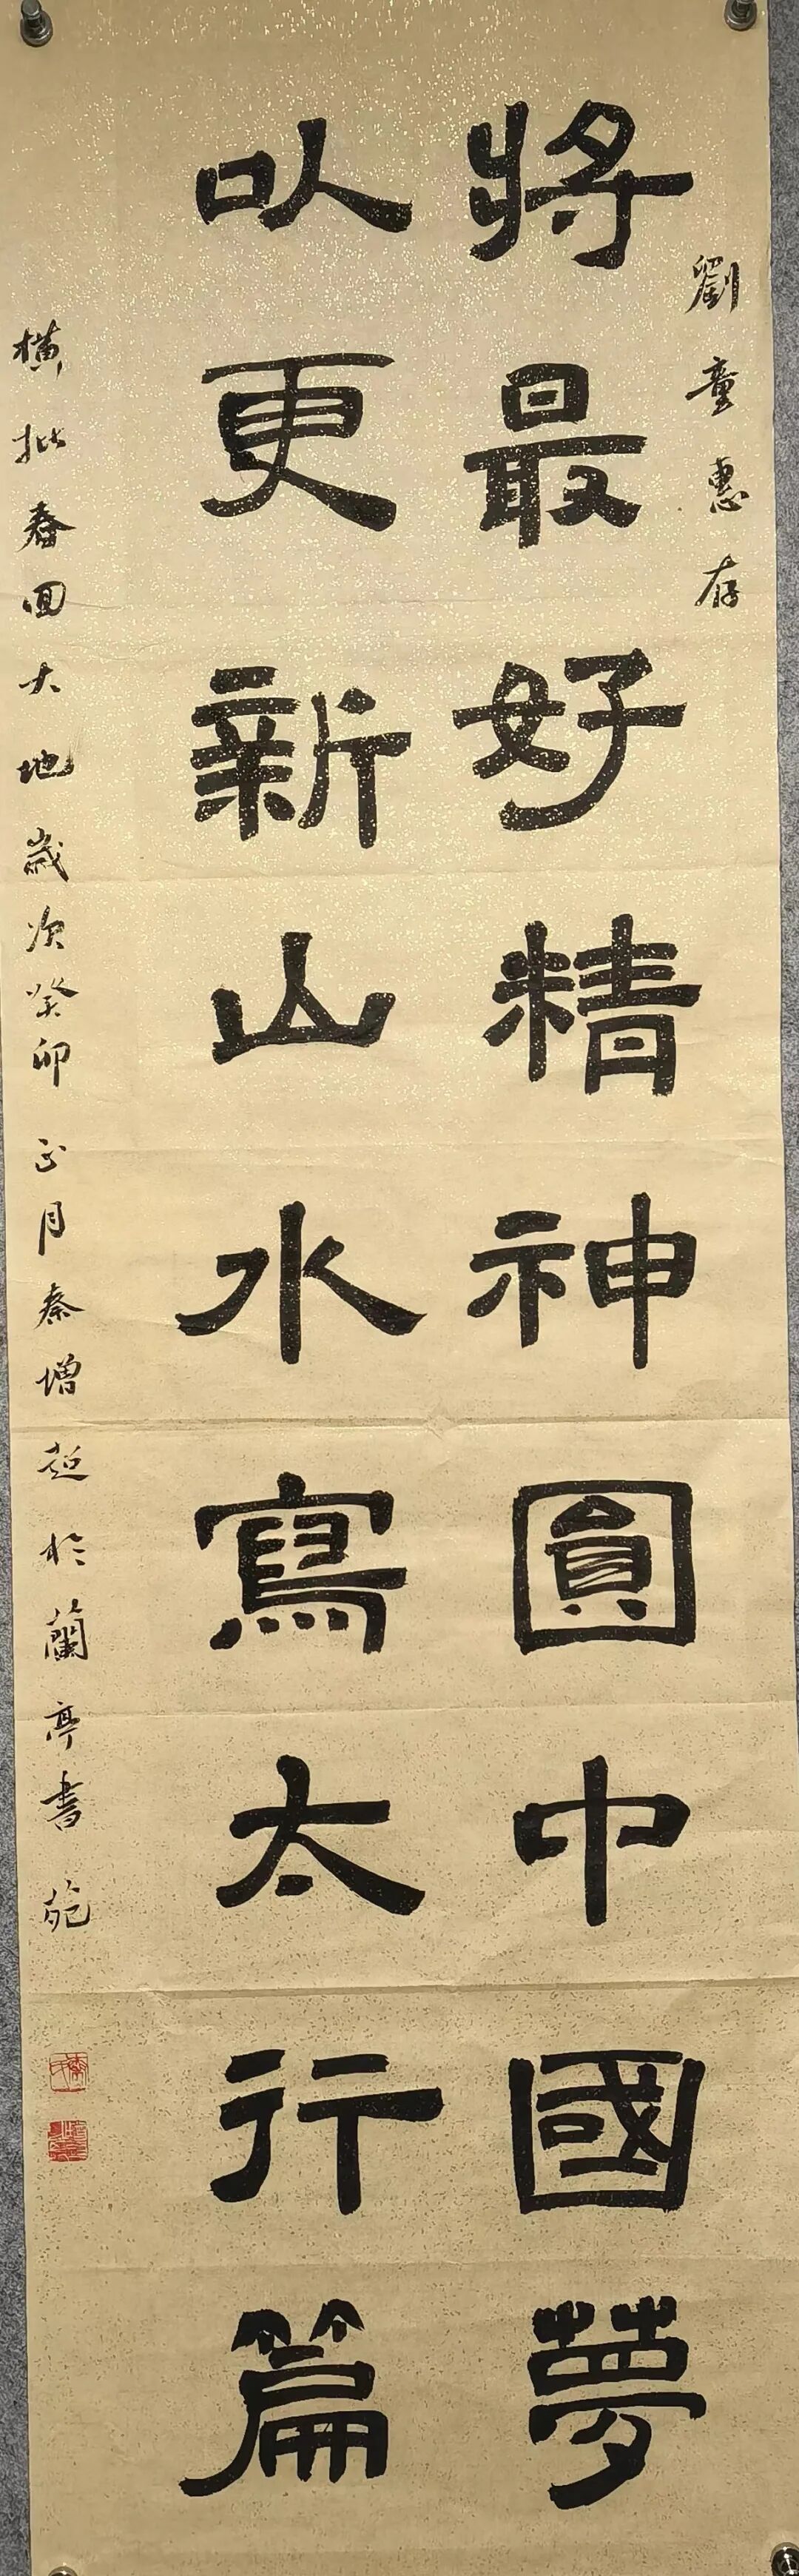 劉童惠存
將最好精神圓中國夢
以更新山水寫太行篇
橫批春回大地歲次癸卯正月秦增起於蘭亭書苑